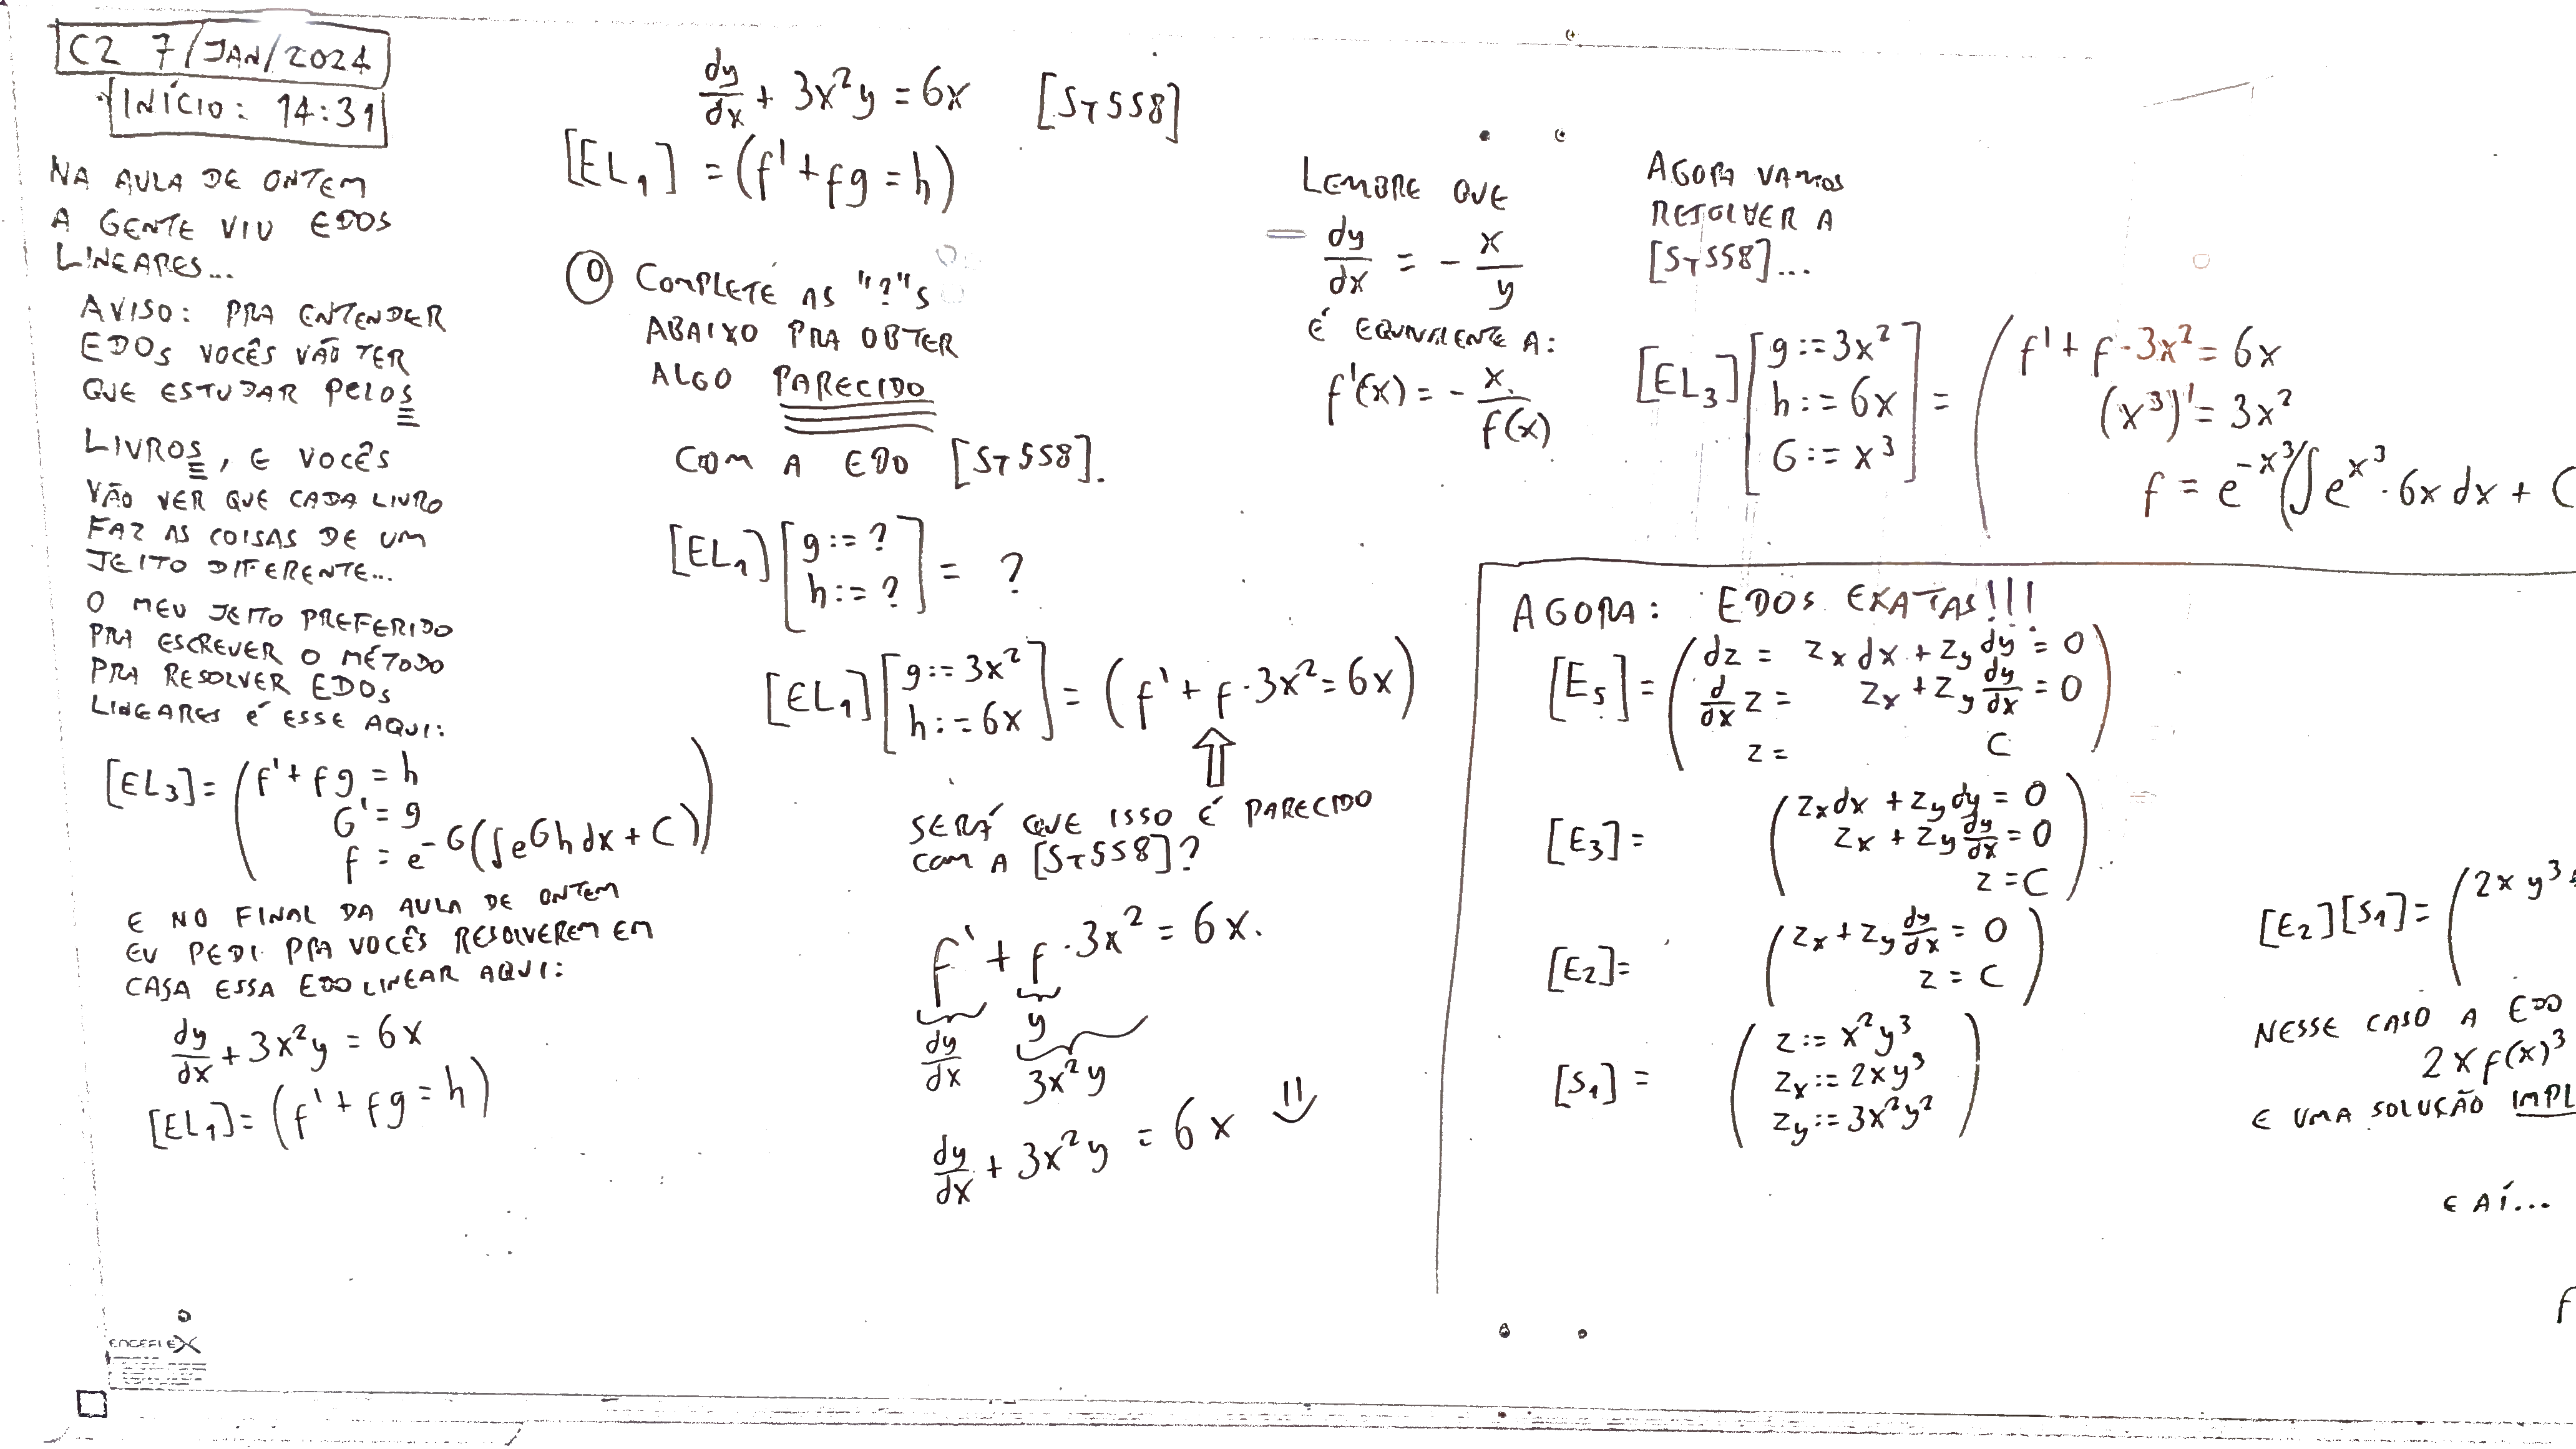 C2 7/JAN/2024
INÍCIO: 14:31
NA AULA DE ONTEM
A GENTE VIU EDOS
LINEARES...
AVISO: PRA ENTENDER
EDOS VOCÊS VÃO TER
QUE ESTUDAR PELOS
LIVROS, E VOCÊS
VÃO VER QUE CADA LIVRO
FAZ AS COISAS DE UM
JEITO DIFERENTE...
O MEU JEITO PREFERIDO
PRA ESCREVER O MÉTODO
PRA RESOLVER EDOS
LINEARES É ESSE AQUI:
[EL₃] = (f' + fg = h
G' = g
f = e^{-G}(∫e^G h dx + C))
E NO FINAL DA AULA DE ONTEM
EU PEDI PRA VOCÊS RESOLVEREM EM
CASA ESSA EDO LINEAR AQUI:
dy/dx + 3x²y = 6x
[EL₁] = (f' + fg = h)
dy/dx + 3x²y = 6x [ST558]
[EL₁] = (f' + fg = h)
⓪ COMPLETE AS "?"S
ABAIXO PRA OBTER
ALGO PARECIDO
COM A EDO [ST558].
[EL₁][g := ?
h := ?] = ?
[EL₁][g := 3x²
h := 6x] = (f' + f·3x² = 6x)
⇑
SERÁ QUE ISSO É PARECIDO
COM A [ST558]?
f' + f·3x² = 6x.
dy/dx y
3x²y
dy/dx + 3x²y = 6x
LEMBRE QUE
dy/dx = - x/y
É EQUIVALENTE A:
f'(x) = - x/f(x)
AGORA VAMOS
RESOLVER A
[ST558]...
[EL₃][g := 3x²
h := 6x
G := x³] = (f' + f·3x² = 6x
(x³)' = 3x²
f = e^{-x³}(∫e^{x³}·6x dx + C
AGORA: EDOS EXATAS!!!
[E₅] = (dz = z_x dx + z_y dy = 0
d/dx z = z_x + z_y dy/dx = 0
z = C)
[E₃] = (z_x dx + z_y dy = 0
z_x + z_y dy/dx = 0
z = C)
[E₂] = (z_x + z_y dy/dx = 0
z = C)
[S₁] = (z := x²y³
z_x := 2xy³
z_y := 3x²y²)
[E₂][S₁] = (2xy³
NESSE CASO A EDO
2xf(x)³
E UMA SOLUÇÃO IMPL
E AÍ...
f
ENGEFLEX